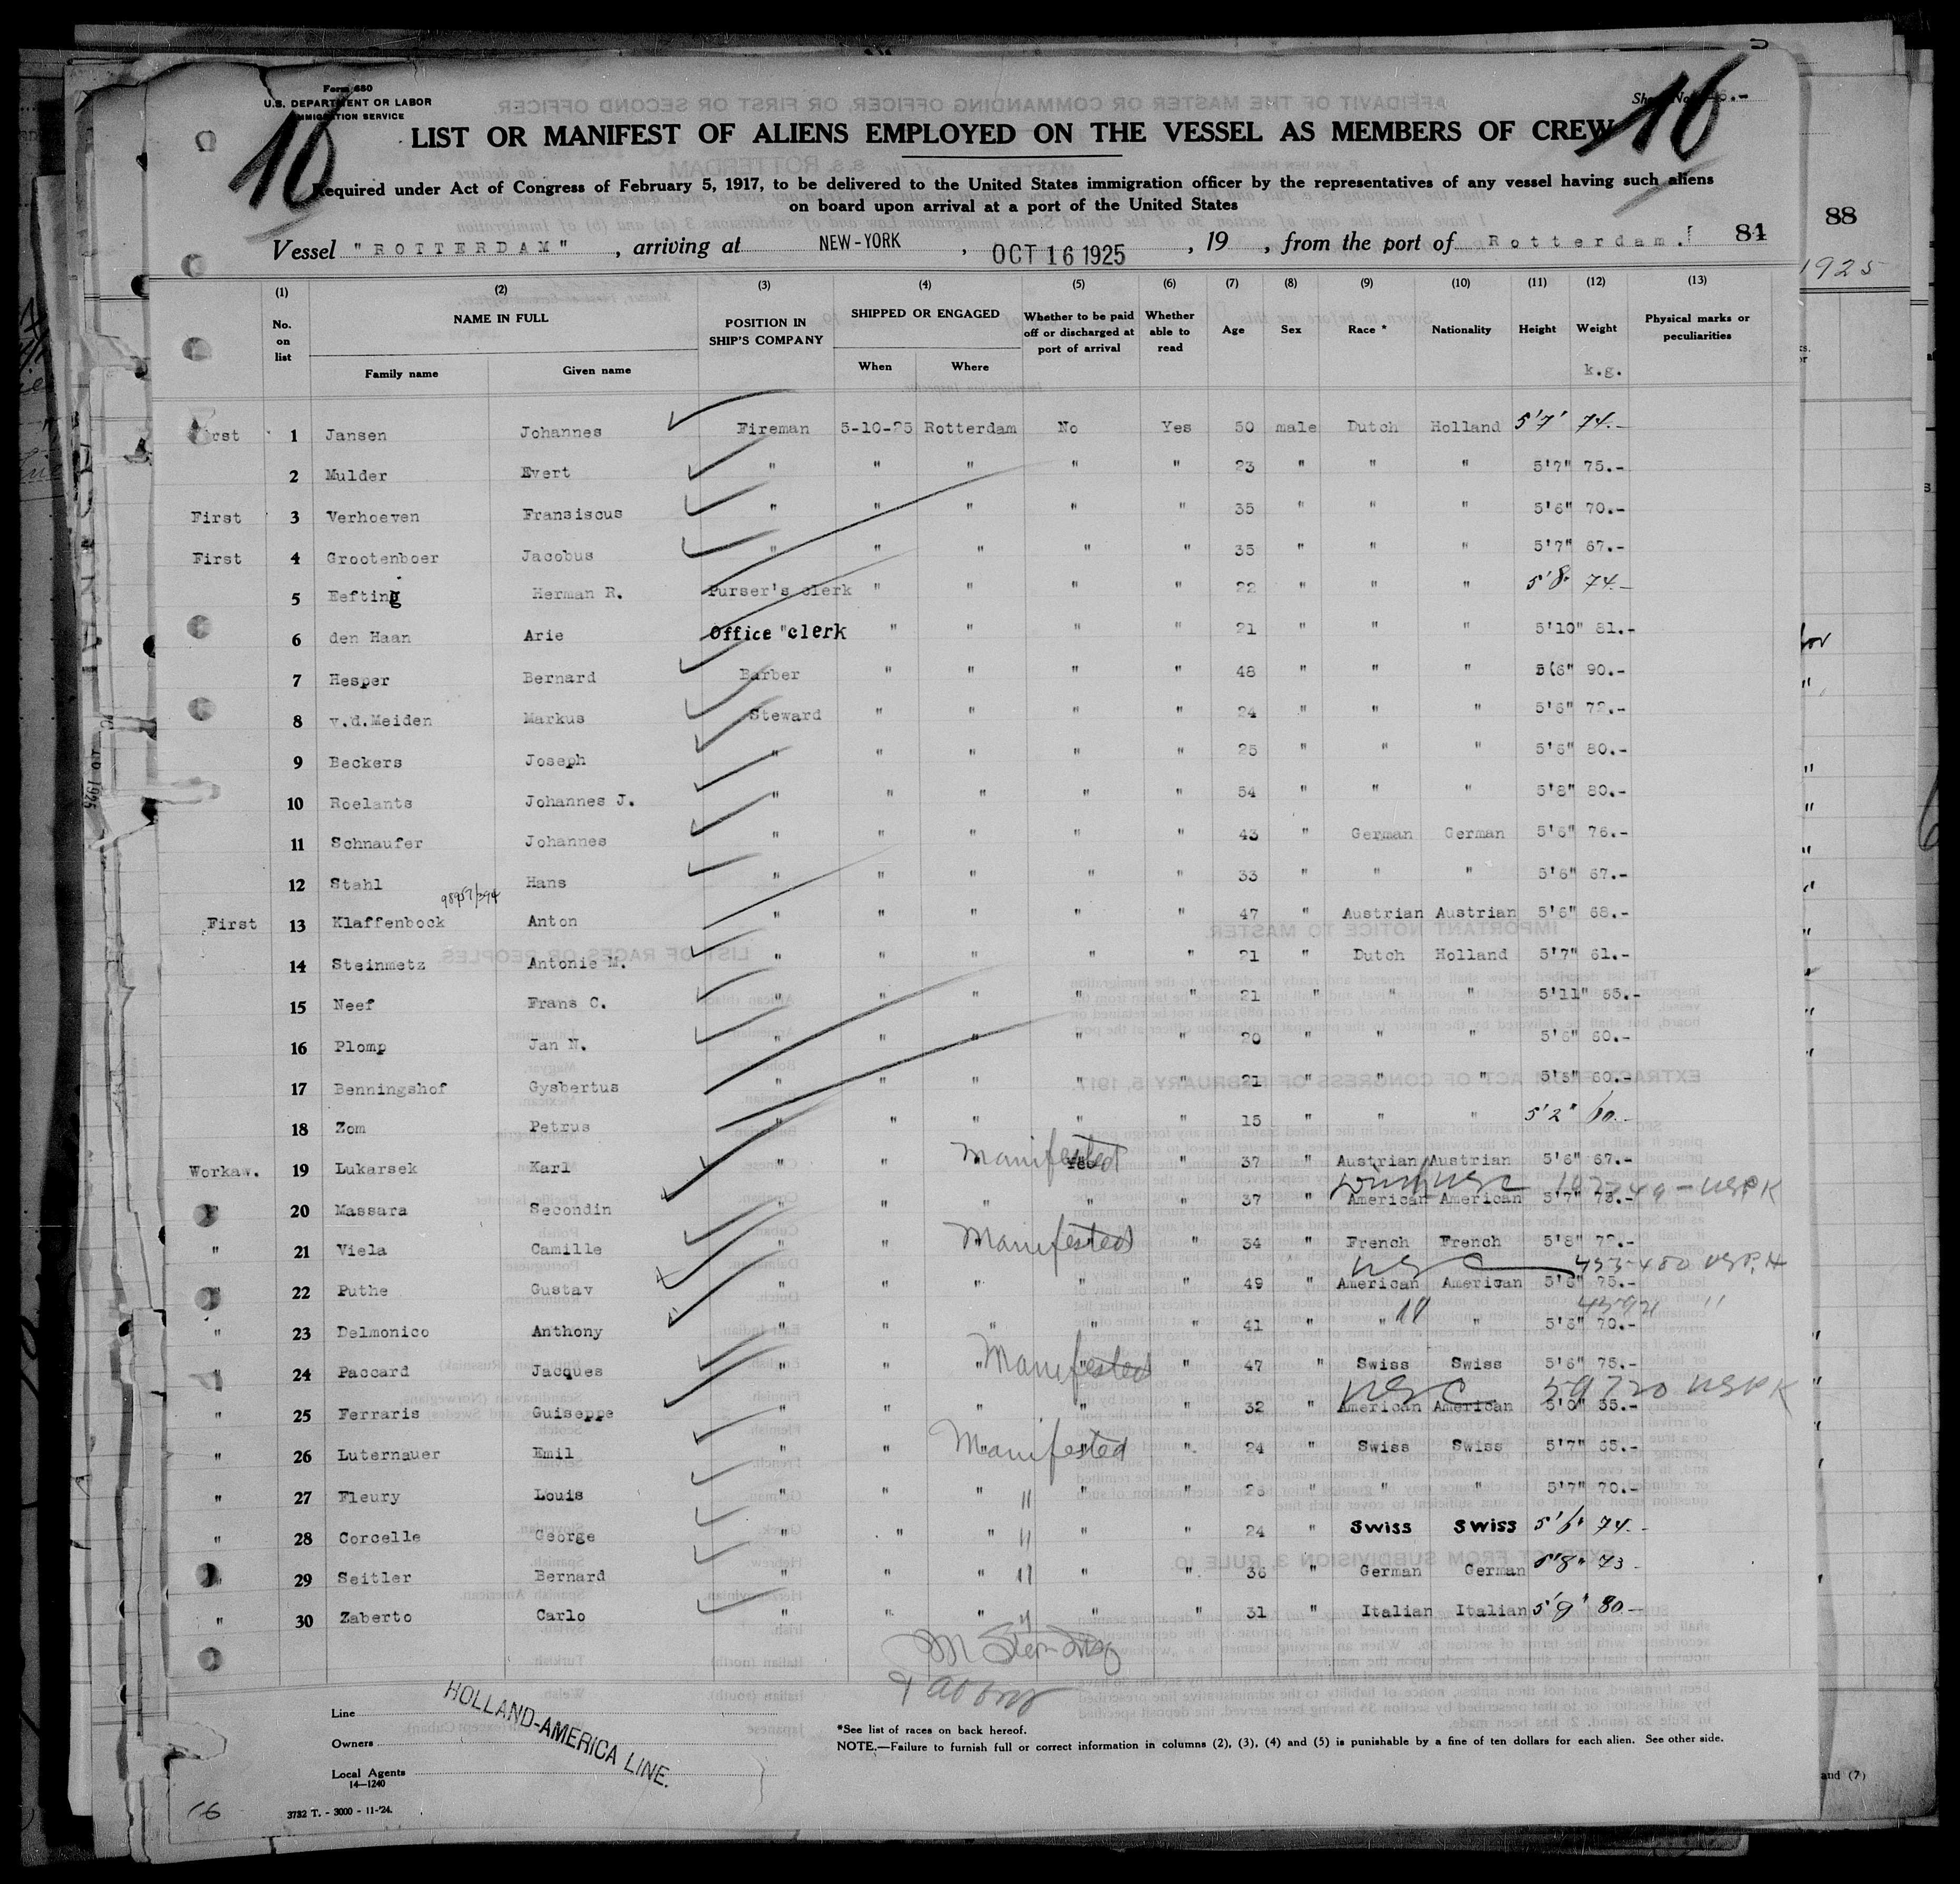 Form 680
U.S. DEPARTMENT OR LABOR
IMMIGRATION SERVICE
16
16
Sheet No. 16.-
LIST OR MANIFEST OF ALIENS EMPLOYED ON THE VESSEL AS MEMBERS OF CREW
Required under Act of Congress of February 5, 1917, to be delivered to the United States immigration officer by the representatives of any vessel having such aliens
on board upon arrival at a port of the United States
88
Vessel "ROTTERDAM" , arriving at NEW-YORK , OCT 16 1925 , 19 , from the port of Rotterdam. 84
1925
(1) (2) (3) (4) (5) (6) (7) (8) (9) (10) (11) (12) (13)
No. on list NAME IN FULL POSITION IN SHIP'S COMPANY SHIPPED OR ENGAGED Whether to be paid off or discharged at port of arrival Whether able to read Age Sex Race * Nationality Height Weight Physical marks or peculiarities
Family name Given name When Where k.g.
First 1 Jansen Johannes Fireman 5-10-25 Rotterdam No Yes 50 male Dutch Holland 5'7' 74.-
2 Mulder Evert " " " " " 23 " " " 5'7" 75.-
First 3 Verhoeven Fransiscus " " " " " 35 " " " 5'6" 70.-
First 4 Grootenboer Jacobus " " " " " 35 " " " 5'7" 67.-
5 Eefting Herman R. Purser's clerk " " " " 22 " " " 5'8" 74.-
6 den Haan Arie Office "clerk " " " " 21 " " " 5'10" 81.-
7 Hesper Bernard Barber " " " " 48 " " " 5'6" 90.-
8 v.d.Meiden Markus Steward " " " " 24 " " " 5'6" 72.-
9 Beckers Joseph " " " " " 25 " " " 5'6" 80.-
10 Roelants Johannes J. " " " " " 54 " " " 5'8" 80.-
11 Schnaufer Johannes " " " " " 43 " German German 5'6" 76.-
12 Stahl Hans " " " " " 33 " " " 5'6" 67.-
First 13 Klaffenbock Anton " " " " " 47 " Austrian Austrian 5'6" 68.-
14 Steinmetz Antonie M. " " " " " 21 " Dutch Holland 5'7" 61.-
15 Neef Frans C. " " " " " 21 " " " 5'11" 55.-
16 Plomp Jan N. " " " " " 20 " " " 5'6" 60.-
17 Benningshof Gysbertus " " " " " 21 " " " 5'5" 60.-
18 Zom Petrus " " " " " 15 " " " 5'2" 60.-
Workaw. 19 Lukarsek Karl " " Manifested Yes " 37 " Austrian Austrian 5'6" 67.-
" 20 Massara Secondin " " " " " 37 " American American 5'7" 73.-
" 21 Viela Camille " " Manifested " " 34 " French French 5'8" 72.-
" 22 Puthe Gustav " " " " " 49 " American American 5'6" 75.-
" 23 Delmonico Anthony " " " " " 41 " " " 5'6" 70.-
" 24 Paccard Jacques " " " Manifested " 47 " Swiss Swiss 5'6" 75.-
USC 59720 USPK
" 25 Ferraris Guiseppe " " " " " 32 " American American 5'0" 55.-
" 26 Luternauer Emil " " Manifested " " 24 " Swiss Swiss 5'7" 65.-
" 27 Fleury Louis " " " " " 26 " " " 5'7" 70.-
" 28 Corcelle George " " " " " 24 " Swiss Swiss 5'6" 74.-
" 29 Seitler Bernard " " " " " 36 " German German 5'8" 73-
" 30 Zaberto Carlo " " " " " 31 " Italian Italian 5'9" 80-
Line
HOLLAND-AMERICA LINE.
Owners
Local Agents
14—1240
*See list of races on back hereof.
NOTE.—Failure to furnish full or correct information in columns (2), (3), (4) and (5) is punishable by a fine of ten dollars for each alien. See other side.
and (7)
16
3732 T. - 3000 - 11-'24.